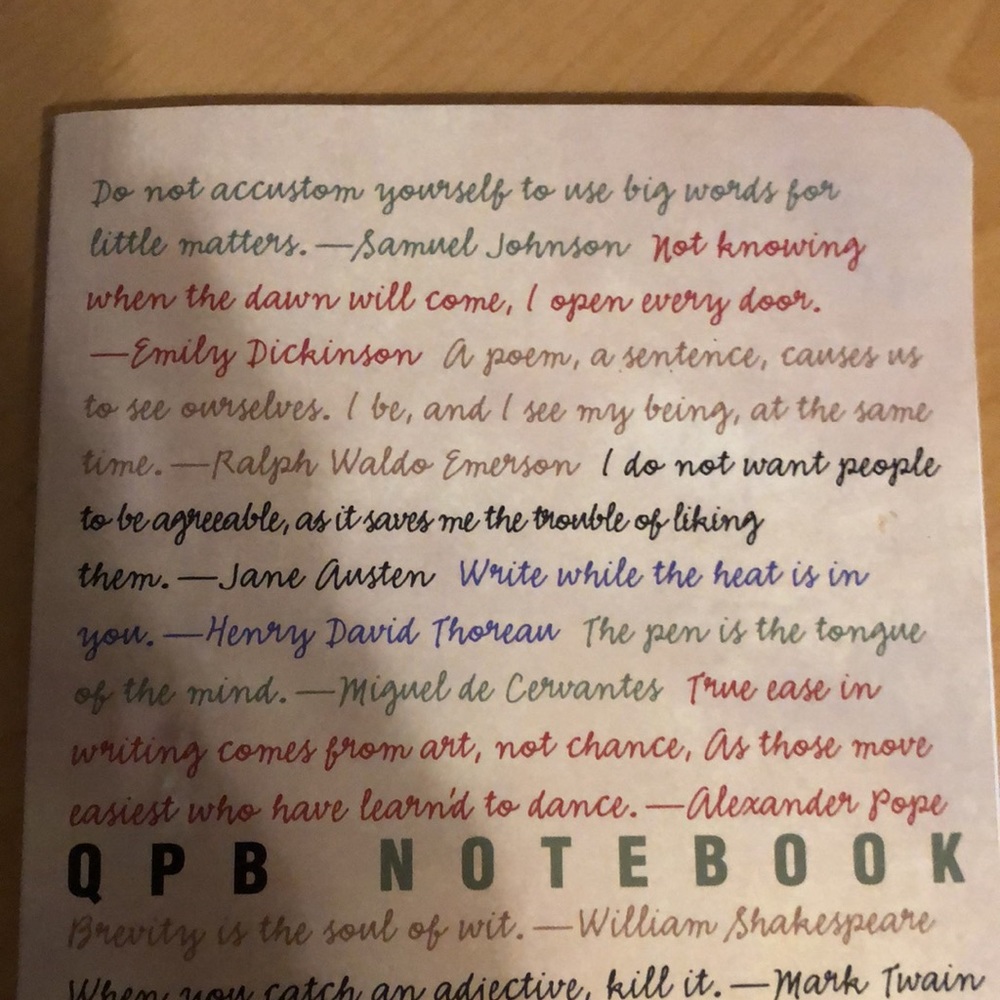 Do not accustom yourself to use big words for
little matters. —Samuel Johnson Not knowing
when the dawn will come, I open every door.
—Emily Dickinson A poem, a sentence, causes us
to see ourselves. I be, and I see my being, at the same
time. —Ralph Waldo Emerson I do not want people
to be agreeable, as it saves me the trouble of liking
them. —Jane Austen Write while the heat is in
you. —Henry David Thoreau The pen is the tongue
of the mind. —Miguel de Cervantes True ease in
writing comes from art, not chance, As those move
easiest who have learn'd to dance. —Alexander Pope
QPB NOTEBOOK
Brevity is the soul of wit. —William Shakespeare
When you catch an adjective, kill it. —Mark Twain